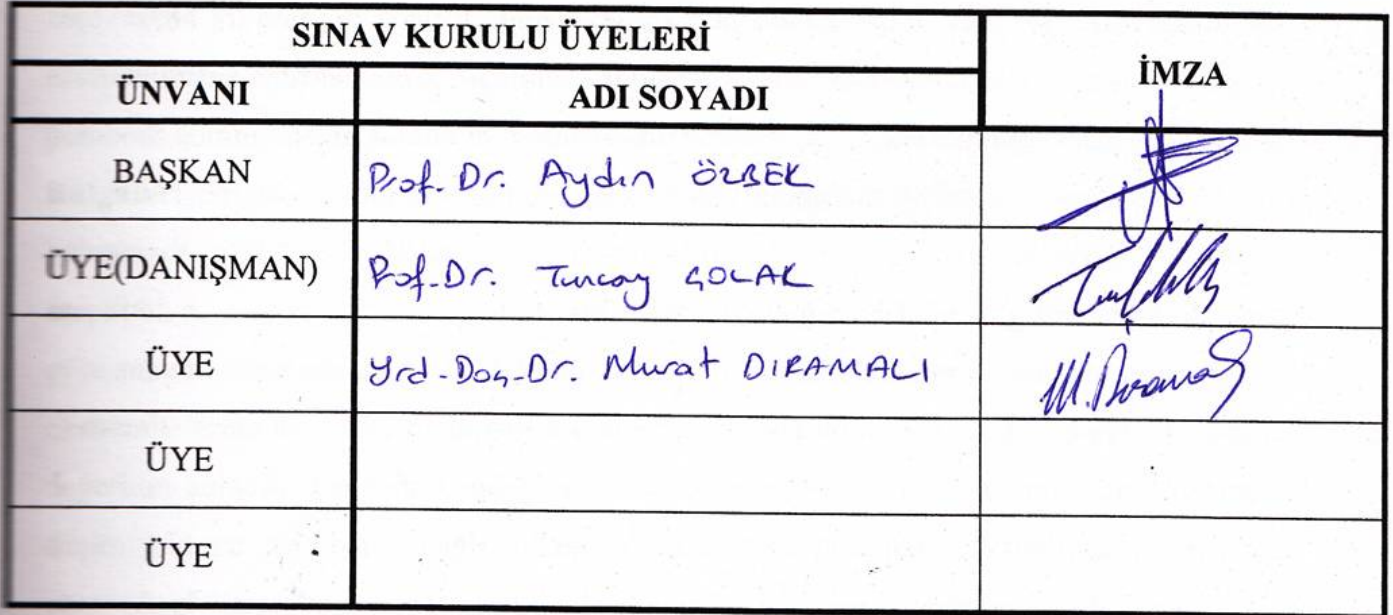 SINAV KURULU ÜYELERİ
İMZA
ÜNVANI ADI SOYADI
BAŞKAN Prof. Dr. Aydın ÖZBEK
ÜYE(DANIŞMAN) Prof. Dr. Tuncay ÇOLAK
ÜYE Yrd. Doç. Dr. Murat DIRAMALI
M. Dıramalı
ÜYE
ÜYE